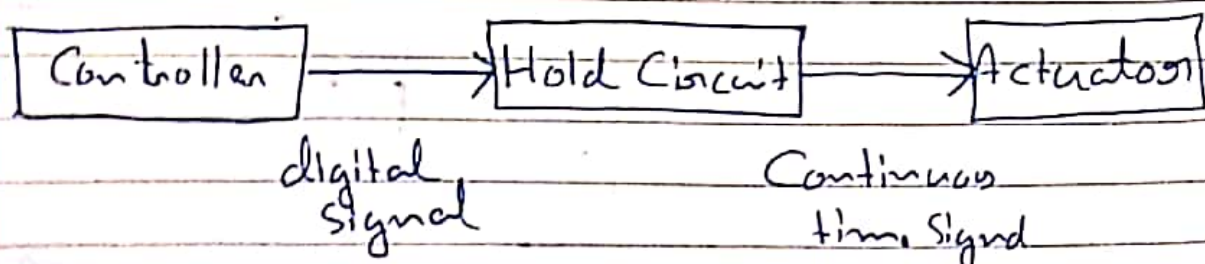 Controller
Hold Circuit
Actuator
digital
signal
Continuous
time signal